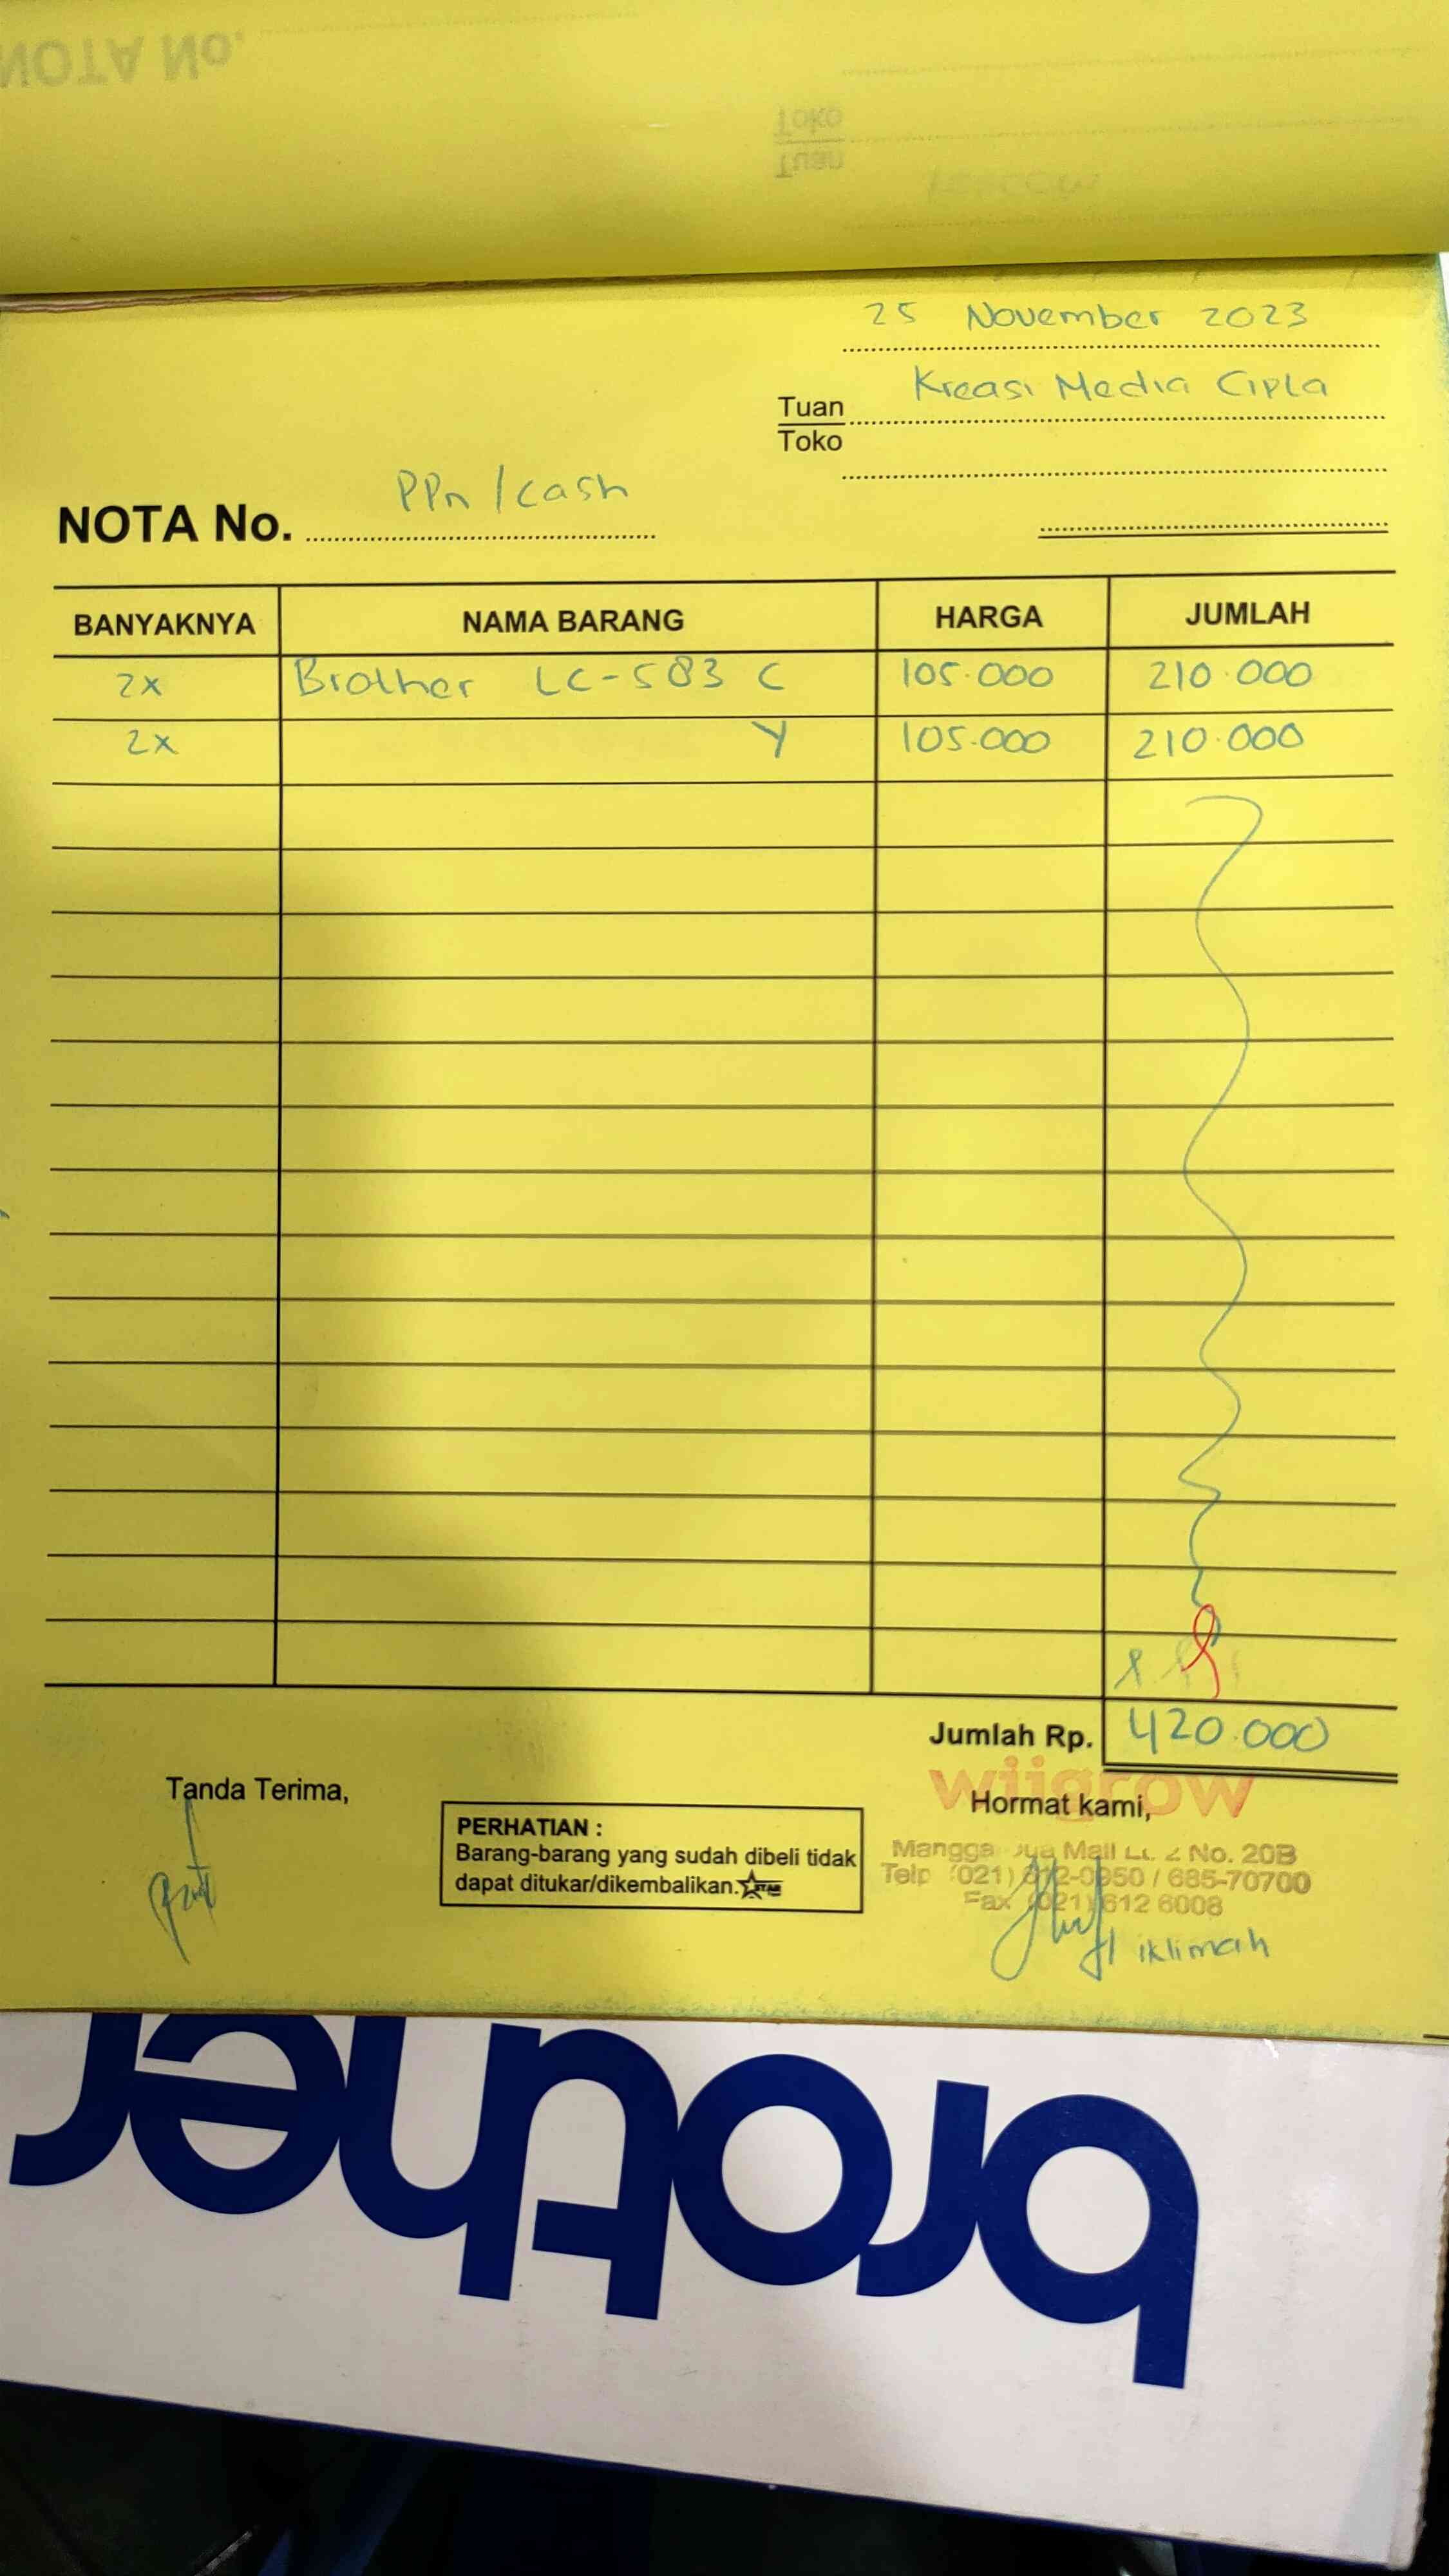 NOTA No.
Toko
Tuan
25 November 2023
Kreasi Media Cipta
Tuan
Toko
PPn / cash
NOTA No.
BANYAKNYA NAMA BARANG HARGA JUMLAH
2x Brother LC-583 C 105.000 210.000
2x Y 105.000 210.000
Jumlah Rp. 420.000
wiigrow
Tanda Terima,
Hormat kami,
PERHATIAN :
Barang-barang yang sudah dibeli tidak
dapat ditukar/dikembalikan. STAR
Mangga Dua Mall Lt. 2 No. 20B
Telp (021) 612-0950 / 685-70700
Fax (021) 612 6008
iklimah
brother